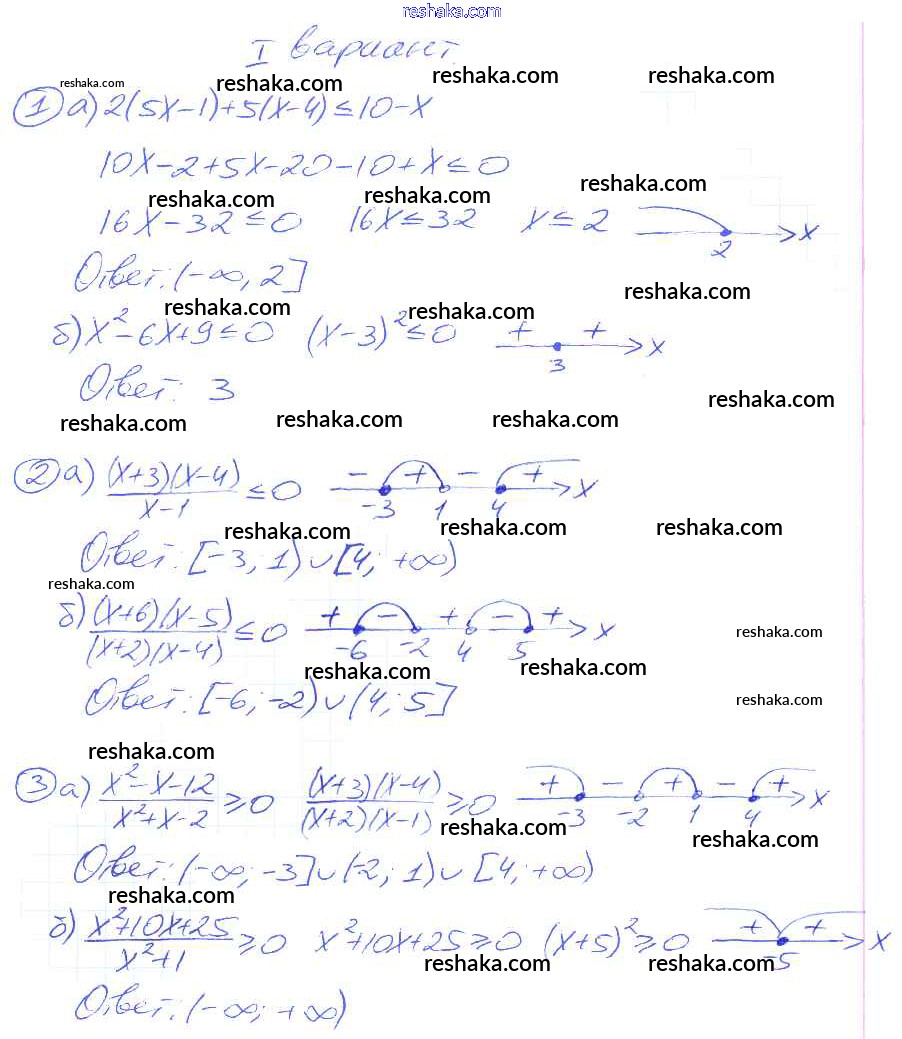 reshaka.com
I вариант.
reshaka.com reshaka.com reshaka.com reshaka.com
1 а) 2(5x-1)+5(x-4)≤10-x
10x-2+5x-20-10+x≤0
reshaka.com reshaka.com reshaka.com
16x-32≤0 16x≤32 x≤2 2 x
Ответ: (-∞, 2]
reshaka.com reshaka.com reshaka.com
б) x²-6x+9≤0 (x-3)²≤0 + + 3 x
Ответ: 3
reshaka.com reshaka.com reshaka.com reshaka.com
2 а) (x+3)(x-4)/x-1 ≤0 - + - + -3 1 4 x
reshaka.com reshaka.com reshaka.com
Ответ: [-3; 1)∪[4; +∞)
reshaka.com
б) (x+6)(x-5)/(x+2)(x-4) ≤0 + - + - + -6 -2 4 5 x
reshaka.com
reshaka.com reshaka.com
Ответ: [-6; -2)∪(4; 5]
reshaka.com
reshaka.com
3 а) x²-x-12/x²+x-2 ≥0 (x+3)(x-4)/(x+2)(x-1) ≥0 + - + - + -3 -2 1 4 x
reshaka.com reshaka.com
Ответ: (-∞; -3]∪(-2; 1)∪[4; +∞)
reshaka.com
б) x²+10x+25/x²+1 ≥0 x²+10x+25≥0 (x+5)²≥0 + + -5 x
reshaka.com reshaka.com
Ответ: (-∞; +∞)